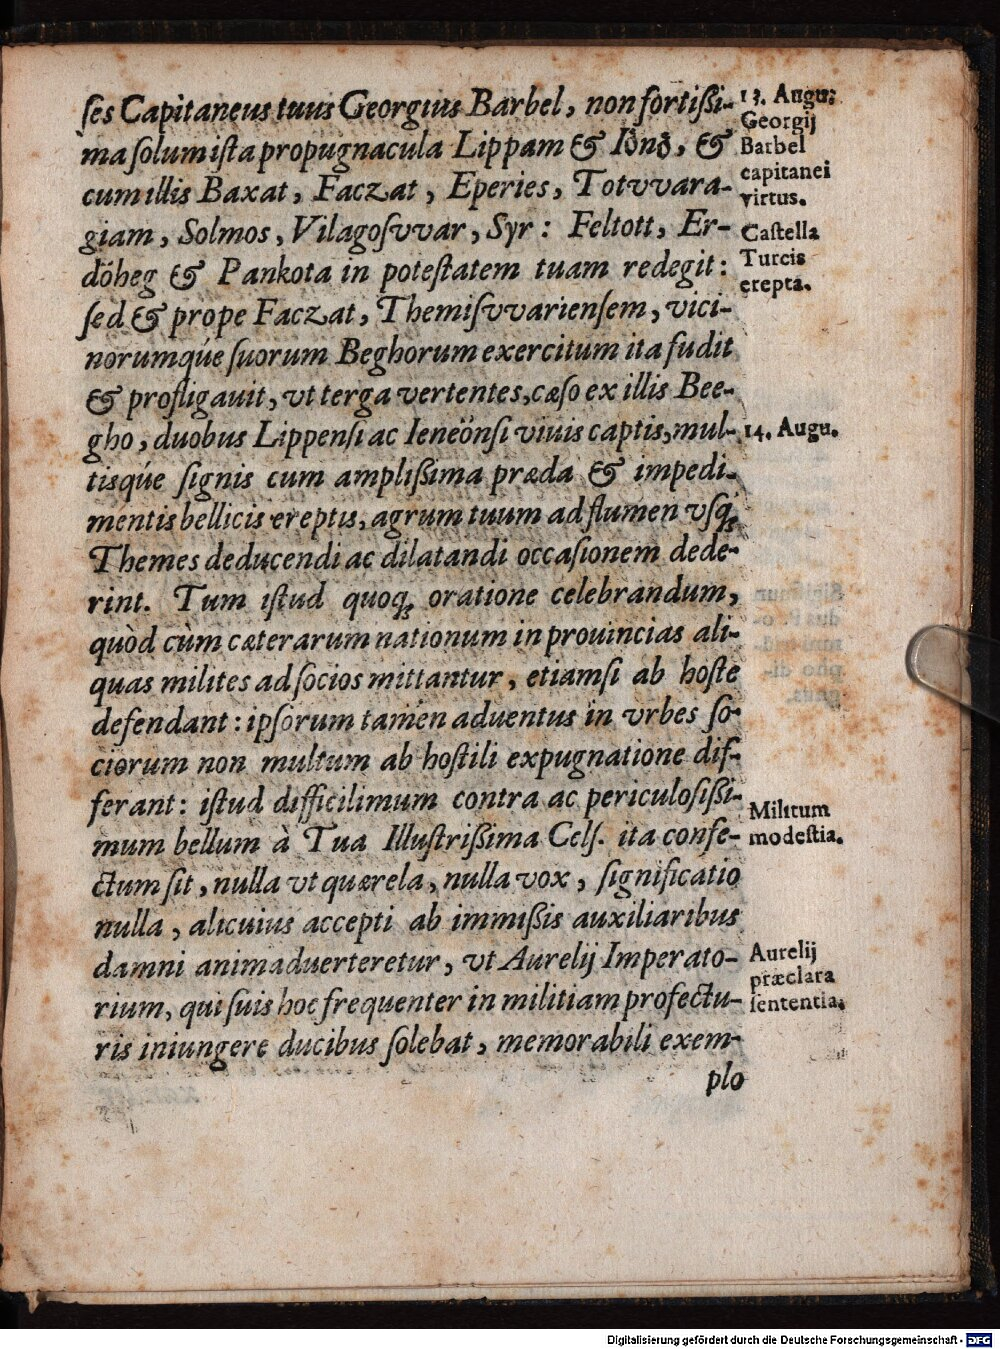 ſes Capitaneus tuus Georgius Barbel, non fortißi-
ma ſolum iſta propugnacula Lippam & Iönö, &
cum illis Baxat, Faczat, Eperies, Totvvara-
giam, Solmos, Vilagoſvvar, Syr: Feltott, Er-
döheg & Pankota in poteſtatem tuam redegit:
ſed & prope Faczat, Themiſvvarienſem, vici-
norumqúe ſuorum Beghorum exercitum ita fudit
& profligauit, vt terga vertentes, cæſo ex illis Bee-
gho, duobus Lippenſi ac Ieneönſi viuis captis, mul-
tisqúe ſignis cum amplißima præda & impedi-
mentis bellicis ereptis, agrum tuum ad flumen vſq;
Themes deducendi ac dilatandi occaſionem dede-
rint. Tum iſtud quoq; oratione celebrandum,
quòd cùm cæterarum nationum in prouincias ali-
quas milites ad ſocios mittantur, etiamſi ab hoſte
defendant: ipſorum tamen aduentus in vrbes ſo-
ciorum non multum ab hoſtili expugnatione dif-
ferant: iſtud difficilimum contra ac periculoſißi-
mum bellum à Tua Illuſtrißima Celſ. ita confe-
ctum ſit, nulla vt quærela, nulla vox, ſignificatio
nulla, alicuius accepti ab immißis auxiliaribus
damni animaduerteretur, vt Aurelij Imperato-
rium, qui ſuis hoc frequenter in militiam profectu-
ris iniungere ducibus ſolebat, memorabili exem-
plo
13. Augu:
Georgij
Barbel
capitanei
virtus.
Caſtella
Turcis
erepta.
14. Augu.
Militum
modeſtia.
Aurelij
præclara
ſententia.
Digitalisierung gefördert durch die Deutsche Forschungsgemeinschaft - DFG